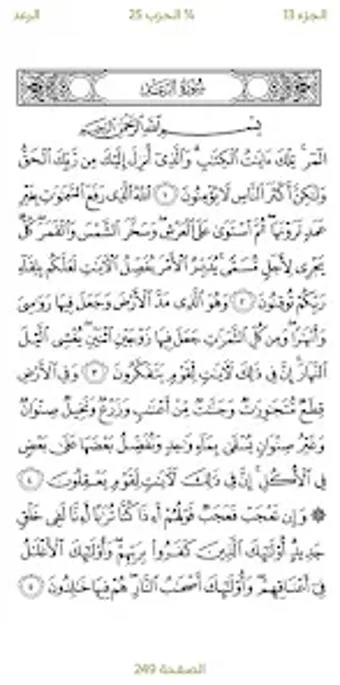 الجزء 13 ¼ الحزب 25 الرعد
سُورَةُ الرَّعْدِ
بِسْمِ اللَّهِ الرَّحْمَٰنِ الرَّحِيمِ
الٓمٓر ۚ تِلْكَ ءَايَٰتُ الْكِتَٰبِ ۗ وَالَّذِىٓ أُنزِلَ إِلَيْكَ مِن رَّبِّكَ الْحَقُّ
وَلَٰكِنَّ أَكْثَرَ النَّاسِ لَا يُؤْمِنُونَ ١ اللَّهُ الَّذِى رَفَعَ السَّمَٰوَٰتِ بِغَيْرِ
عَمَدٍ تَرَوْنَهَا ۖ ثُمَّ اسْتَوَىٰ عَلَى الْعَرْشِ ۖ وَسَخَّرَ الشَّمْسَ وَالْقَمَرَ ۖ كُلٌّ
يَجْرِى لِأَجَلٍ مُّسَمًّى ۚ يُدَبِّرُ الْأَمْرَ يُفَصِّلُ الْءَايَٰتِ لَعَلَّكُم بِلِقَآءِ
رَبِّكُمْ تُوقِنُونَ ٢ وَهُوَ الَّذِى مَدَّ الْأَرْضَ وَجَعَلَ فِيهَا رَوَٰسِىَ
وَأَنْهَٰرًا ۖ وَمِن كُلِّ الثَّمَرَٰتِ جَعَلَ فِيهَا زَوْجَيْنِ اثْنَيْنِ ۖ يُغْشِى الَّيْلَ
النَّهَارَ ۚ إِنَّ فِى ذَٰلِكَ لَءَايَٰتٍ لِّقَوْمٍ يَتَفَكَّرُونَ ٣ وَفِى الْأَرْضِ
قِطَعٌ مُّتَجَٰوِرَٰتٌ وَجَنَّٰتٌ مِّنْ أَعْنَٰبٍ وَزَرْعٌ وَنَخِيلٌ صِنْوَانٌ
وَغَيْرُ صِنْوَانٍ يُسْقَىٰ بِمَآءٍ وَٰحِدٍ وَنُفَضِّلُ بَعْضَهَا عَلَىٰ بَعْضٍ
فِى الْأُكُلِ ۚ إِنَّ فِى ذَٰلِكَ لَءَايَٰتٍ لِّقَوْمٍ يَعْقِلُونَ ٤
۞ وَإِن تَعْجَبْ فَعَجَبٌ قَوْلُهُمْ أَءِذَا كُنَّا تُرَٰبًا أَءِنَّا لَفِى خَلْقٍ
جَدِيدٍ ۗ أُو۟لَٰٓئِكَ الَّذِينَ كَفَرُوا۟ بِرَبِّهِمْ ۖ وَأُو۟لَٰٓئِكَ الْأَغْلَٰلُ
فِىٓ أَعْنَاقِهِمْ ۖ وَأُو۟لَٰٓئِكَ أَصْحَٰبُ النَّارِ ۖ هُمْ فِيهَا خَٰلِدُونَ ٥
الصفحة 249